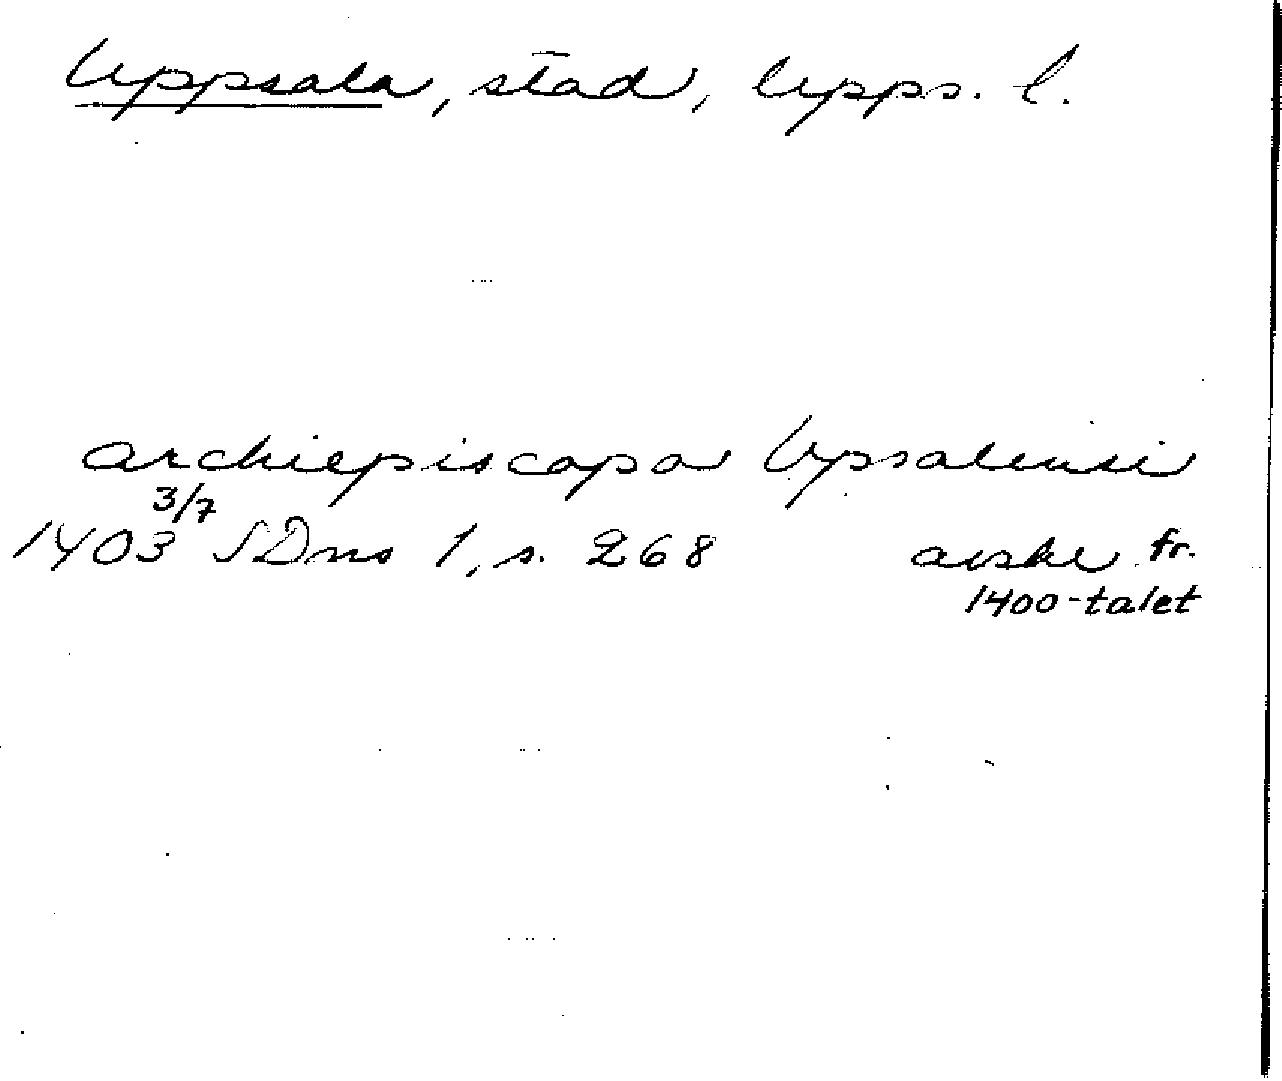 Uppsala, stad, Upps. l.
archiepiscopo Upsalensi
1403 3/7 SDns 1, s. 268 avskr fr.
1400-talet